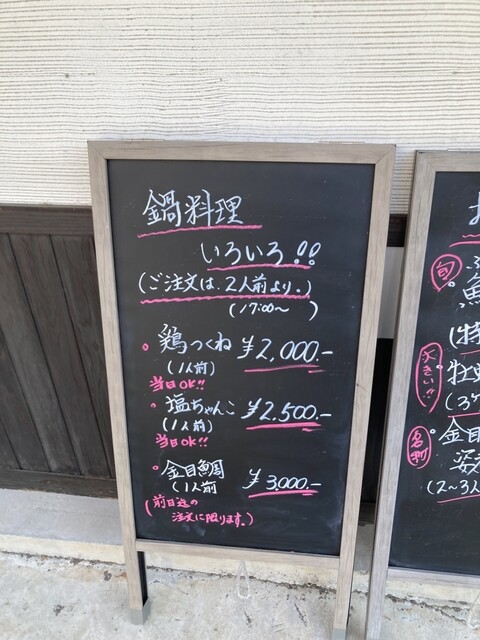 鍋料理
いろいろ!!
(ご注文は、2人前より。)
(17:00〜 )
鶏つくね ¥2,000.-
(1人前)
当日OK!!
塩ちゃんこ ¥2,500.-
(1人前)
当日OK!!
金目鯛 ¥3,000.-
(1人前
(前日迄の
注文に限ります。)
旬
魚
(特
大きい!!
牡
(3ケ
名物
金目
姿
(2〜3人